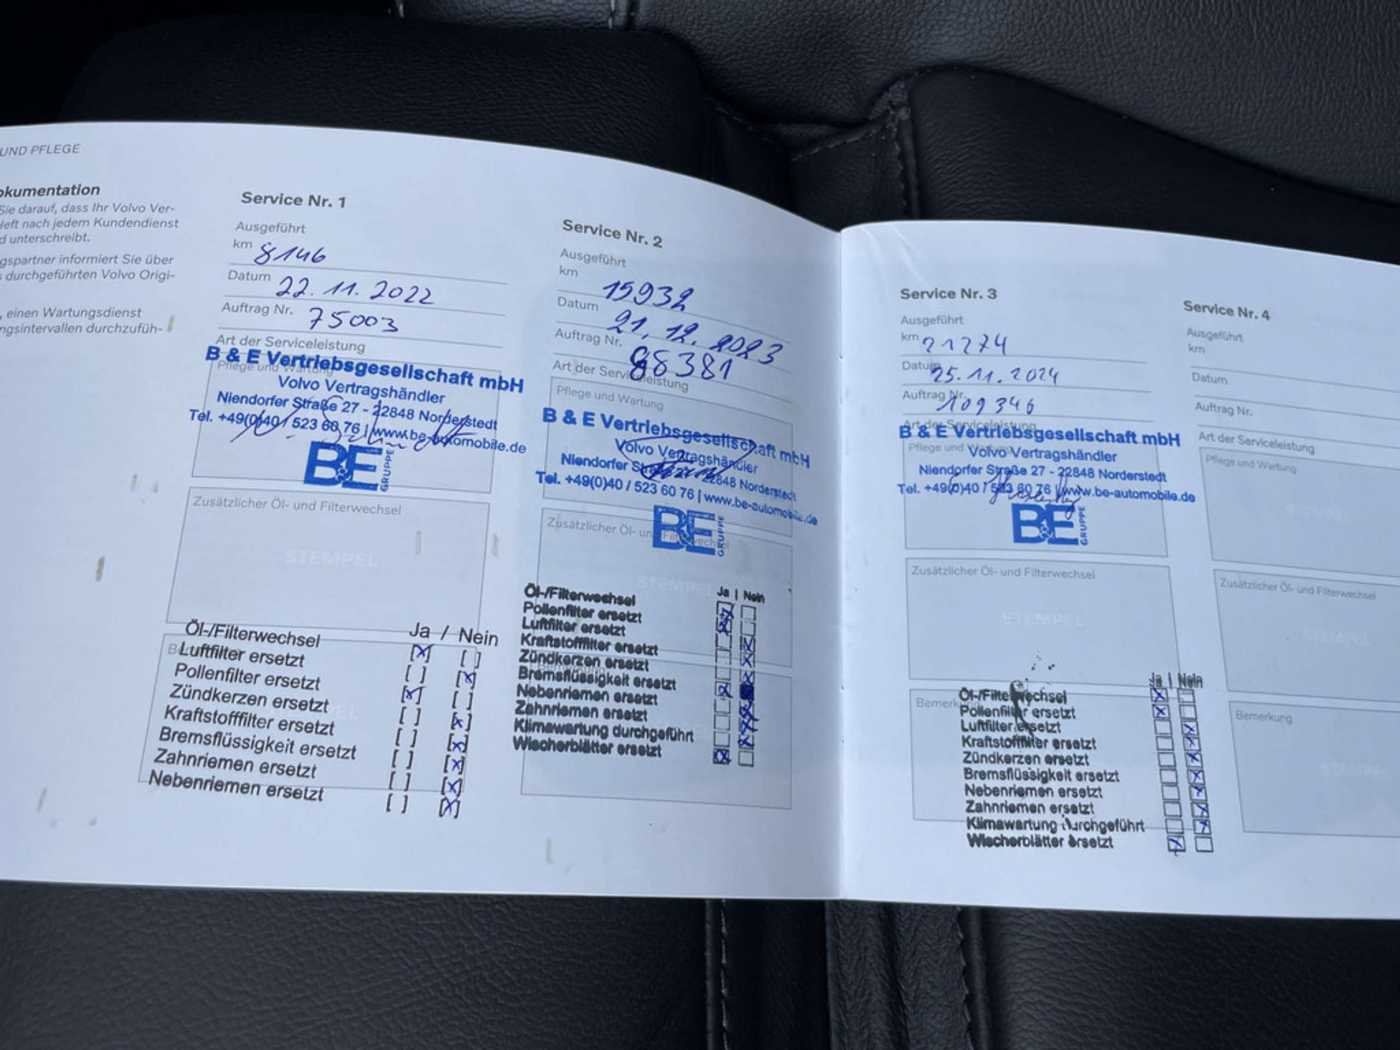 UND PFLEGE
okumentation
Sie darauf, dass Ihr Volvo Ver-
Heft nach jedem Kundendienst
d unterschreibt.
gspartner informiert Sie über
s durchgeführten Volvo Origi-
, einen Wartungsdienst
ngsintervallen durchzufüh-
Service Nr. 1
Ausgeführt
km 8146
Datum 22.11.2022
Auftrag Nr. 75003
Art der Serviceleistung
B & E Vertriebsgesellschaft mbH
Pflege und Wartung
Volvo Vertragshändler
Niendorfer Straße 27 - 22848 Norderstedt
Tel. +49(0)40 / 523 60 76 | www.be-automobile.de
B&E GRUPPE
Zusätzlicher Öl- und Filterwechsel
STEMPEL
Ja / Nein
Öl-/Filterwechsel [X] [ ]
Luftfilter ersetzt [ ] [X]
Pollenfilter ersetzt [X] [ ]
Zündkerzen ersetzt [ ] [X]
Kraftstofffilter ersetzt [ ] [X]
Bremsflüssigkeit ersetzt [ ] [X]
Zahnriemen ersetzt [ ] [X]
Nebenriemen ersetzt [ ] [X]
Service Nr. 2
Ausgeführt
km 15932
Datum 21.12.2023
Auftrag Nr. 98381
Art der Serviceleistung
Pflege und Wartung
B & E Vertriebsgesellschaft mbH
Volvo Vertragshändler
Niendorfer Straße 27 - 22848 Norderstedt
Tel. +49(0)40 / 523 60 76 | www.be-automobile.de
B&E GRUPPE
Zusätzlicher Öl- und Filterwechsel
STEMPEL
Ja | Nein
Öl-/Filterwechsel
Pollenfilter ersetzt
Luftfilter ersetzt
Kraftstofffilter ersetzt
Zündkerzen ersetzt
Bremsflüssigkeit ersetzt
Nebenriemen ersetzt
Zahnriemen ersetzt
Klimawartung durchgeführt
Wischerblätter ersetzt
Service Nr. 3
Ausgeführt
km 21274
Datum 25.11.2024
Auftrag Nr. 109346
Art der Serviceleistung
B & E Vertriebsgesellschaft mbH
Pflege und
Volvo Vertragshändler
Niendorfer Straße 27 - 22848 Norderstedt
Tel. +49(0)40 / 523 60 76 | www.be-automobile.de
B&E GRUPPE
Zusätzlicher Öl- und Filterwechsel
STEMPEL
Bemerkung
Ja | Nein
Öl-/Filterwechsel
Pollenfilter ersetzt
Luftfilter ersetzt
Kraftstofffilter ersetzt
Zündkerzen ersetzt
Bremsflüssigkeit ersetzt
Nebenriemen ersetzt
Zahnriemen ersetzt
Klimawartung durchgeführt
Wischerblätter ersetzt
Service Nr. 4
Ausgeführt
km
Datum
Auftrag Nr.
Art der Serviceleistung
Pflege und Wartung
Zusätzlicher Öl- und Filterwechsel
Bemerkung